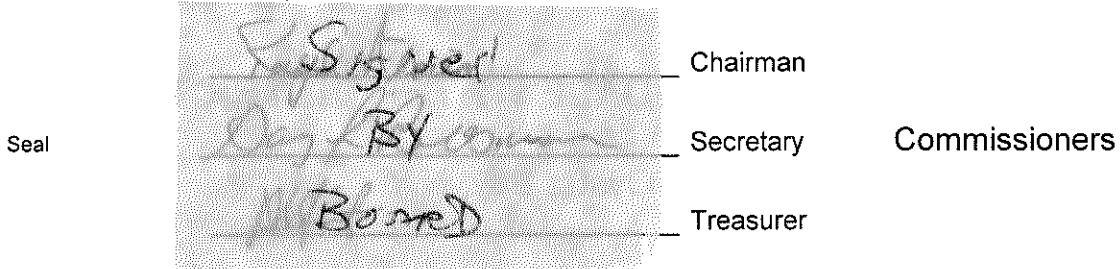 Signed Chairman
Seal By Secretary Commissioners
Board Treasurer